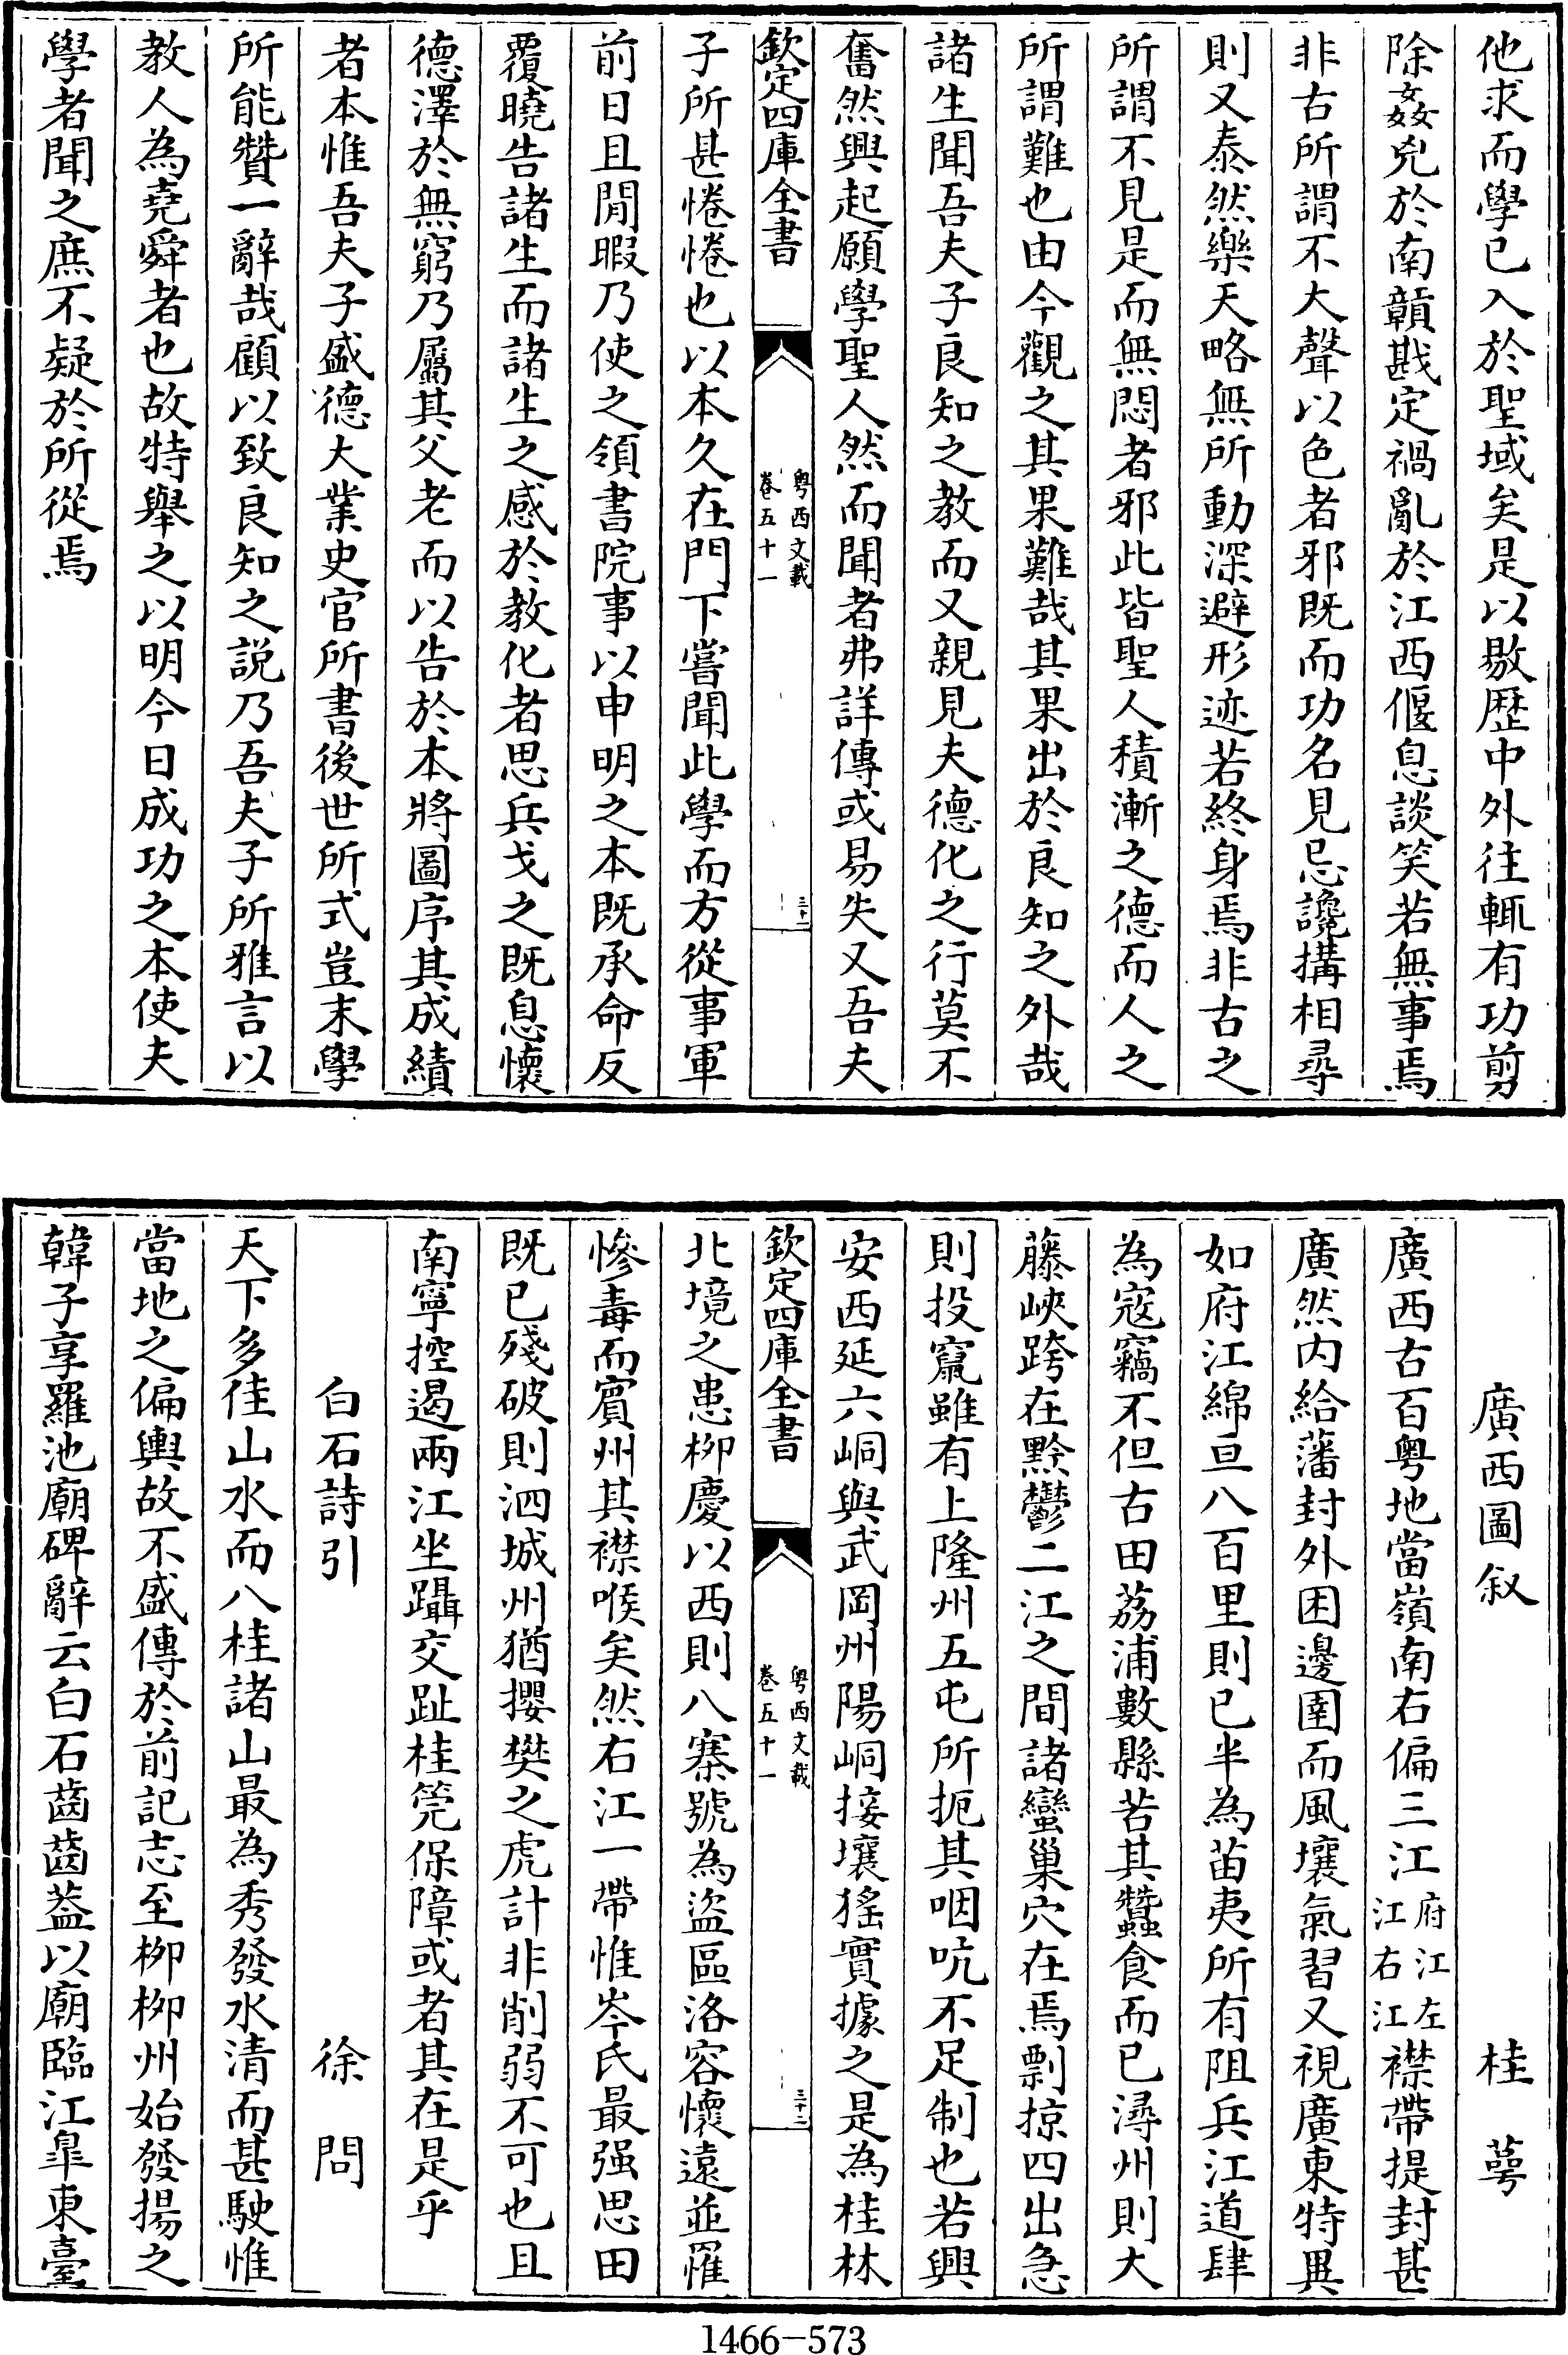 他求而學已入於聖域矣是以敭歴中外往輒有功剪
除姦兇於南贛戡定禍亂於江西偃息談笑若無事焉
非古所謂不大聲以色者邪既而功名見忌讒搆相尋
則又泰然樂天略無所動深避形迹若終身焉非古之
所謂不見是而無悶者邪此皆聖人積漸之德而人之
所謂難也由今觀之其果難哉其果出於良知之外哉
諸生聞吾夫子良知之教而又親見夫德化之行莫不
奮然興起願學聖人然而聞者弗詳傳或易失又吾夫
欽定四庫全書
粤西文載
卷五十一
三十一
子所甚惓惓也以本久在門下嘗聞此學而方從事軍
前日且閒暇乃使之領書院事以申明之本既承命反
覆曉告諸生而諸生之感於教化者思兵戈之既息懷
德澤於無窮乃屬其父老而以告於本將圖序其成績
者本惟吾夫子盛德大業史官所書後世所式豈末學
所能贊一辭哉顧以致良知之説乃吾夫子所雅言以
教人為堯舜者也故特舉之以明今日成功之本使夫
學者聞之庶不疑於所從焉
廣西圖叙 桂萼
廣西古百粤地當嶺南右偏三江府江左江右江襟帶提封甚
廣然内給藩封外困邊圉而風壤氣習又視廣東特異
如府江綿亘八百里則已半為苗夷所有阻兵江道肆
為寇竊不但古田荔浦數縣苦其蠶食而已潯州則大
藤峽跨在黔鬱二江之間諸蠻巢穴在焉剽掠四出急
則投竄雖有上隆州五屯所扼其咽吭不足制也若興
安西延六峒與武岡州陽峒接壤猺實據之是為桂林
欽定四庫全書
粤西文載
卷五十一
三十二
北境之患柳慶以西則八寨號為盜區洛容懷遠並罹
慘毒而賓州其襟喉矣然右江一帶惟岑氏最强思田
既已殘破則泗城州猶攖樊之虎計非削弱不可也且
南寧控遏兩江坐躡交趾桂筦保障或者其在是乎
白石詩引 徐問
天下多佳山水而八桂諸山最為秀發水清而甚駛惟
當地之偏輿故不盛傳於前記志至柳柳州始發揚之
韓子享羅池廟碑辭云白石齒齒葢以廟臨江臯東臺
1466-573